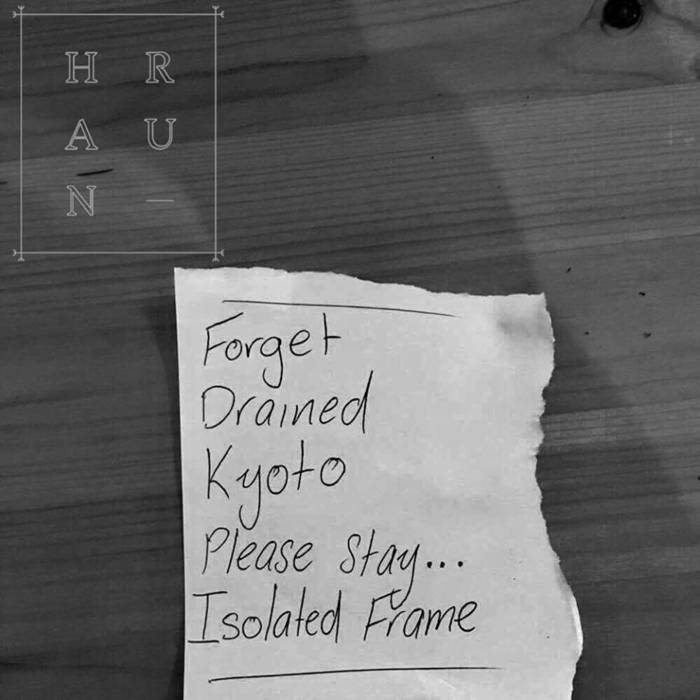 H R
A U
N —
Forget
Drained
Kyoto
Please Stay...
Isolated Frame